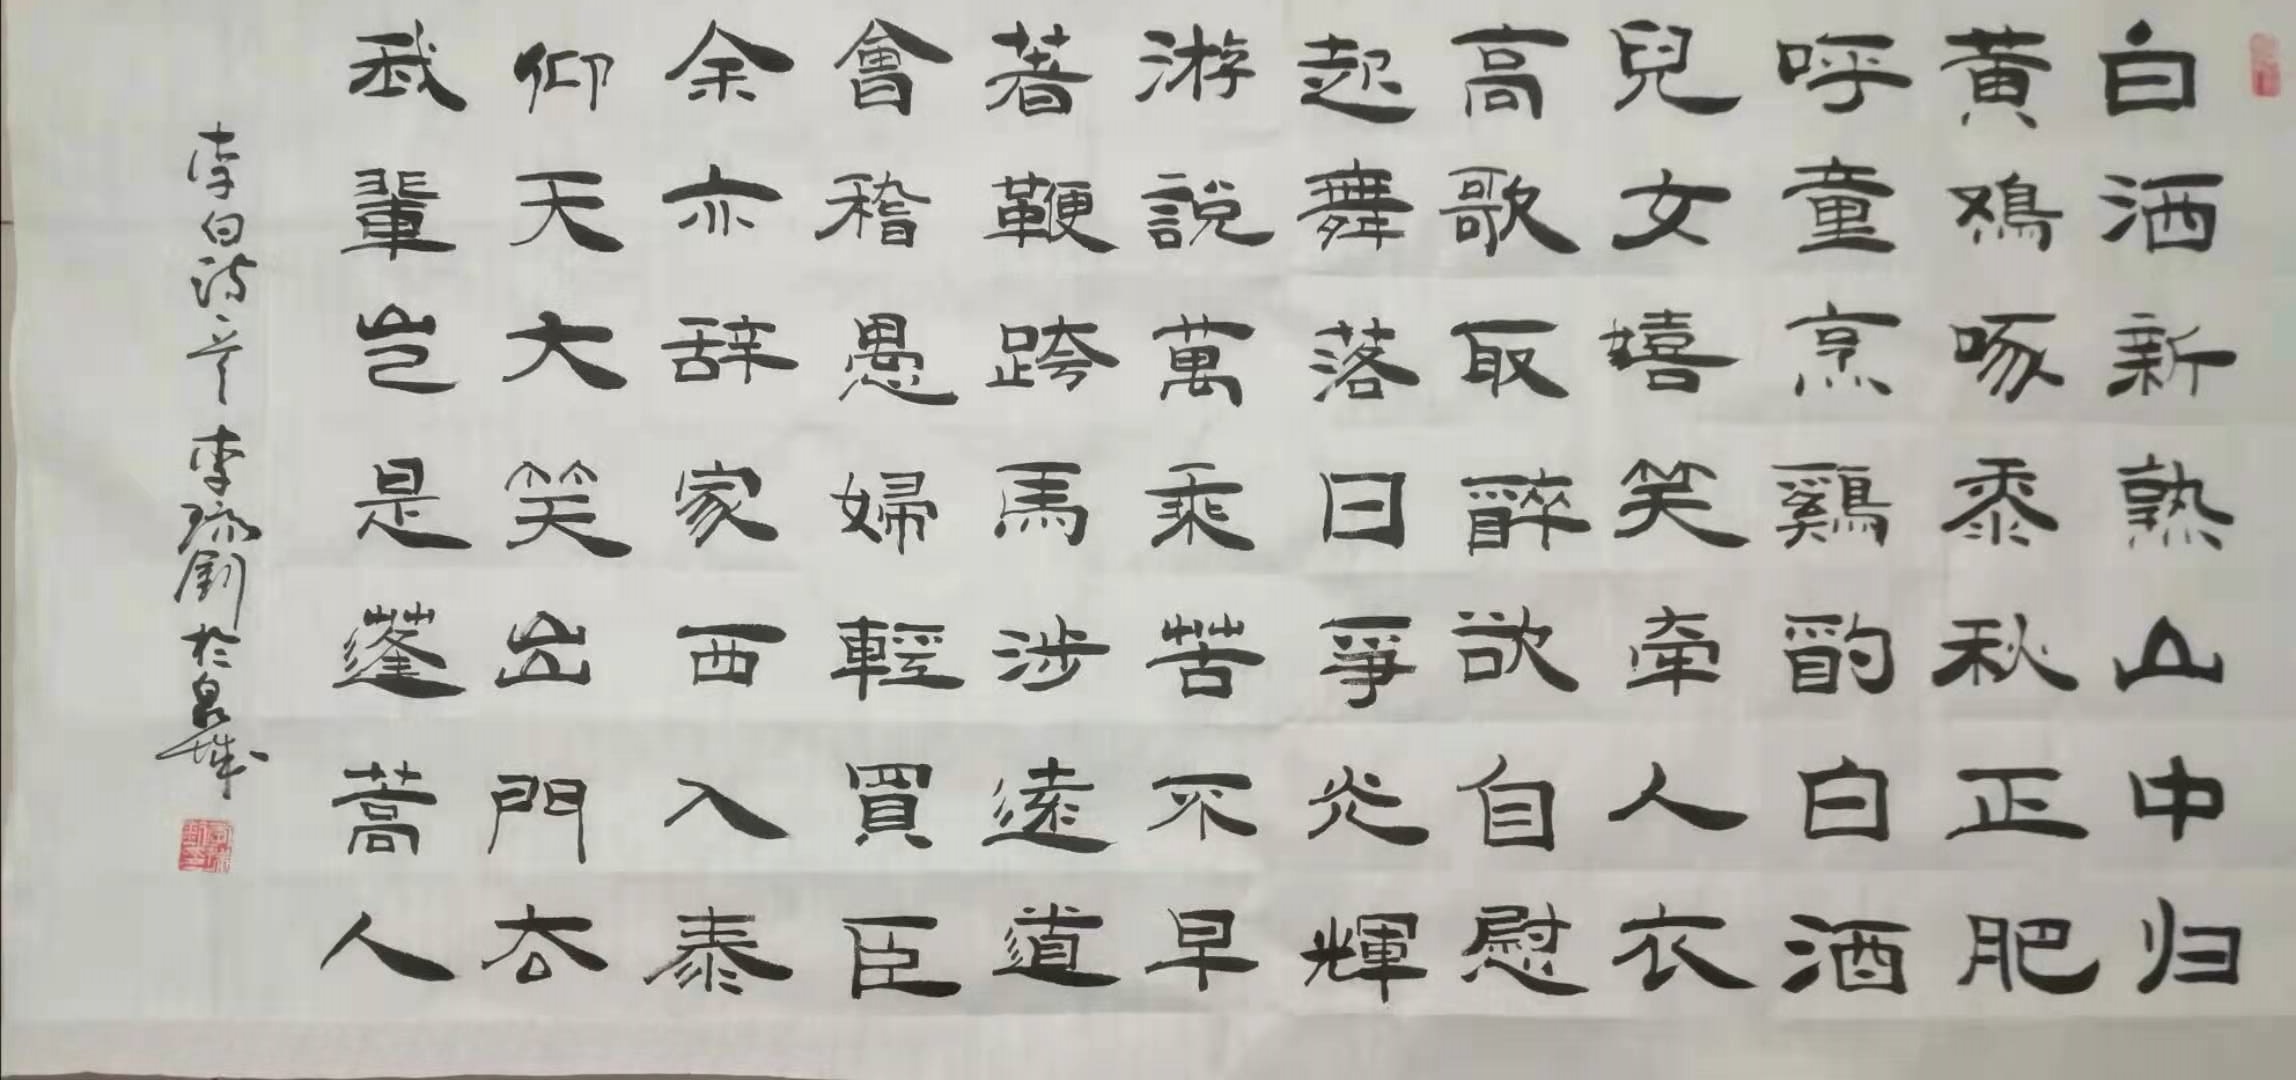 白酒新熟山中归
黄鸡啄黍秋正肥
呼童烹鷄酌白酒
兒女嬉笑牽人衣
高歌取醉欲自慰
起舞落日爭光輝
游說萬乘苦不早
著鞭跨馬涉遠道
會稽愚婦輕買臣
余亦辞家西入秦
仰天大笑出門去
我輩豈是蓬蒿人
李白诗一首 李於泉城